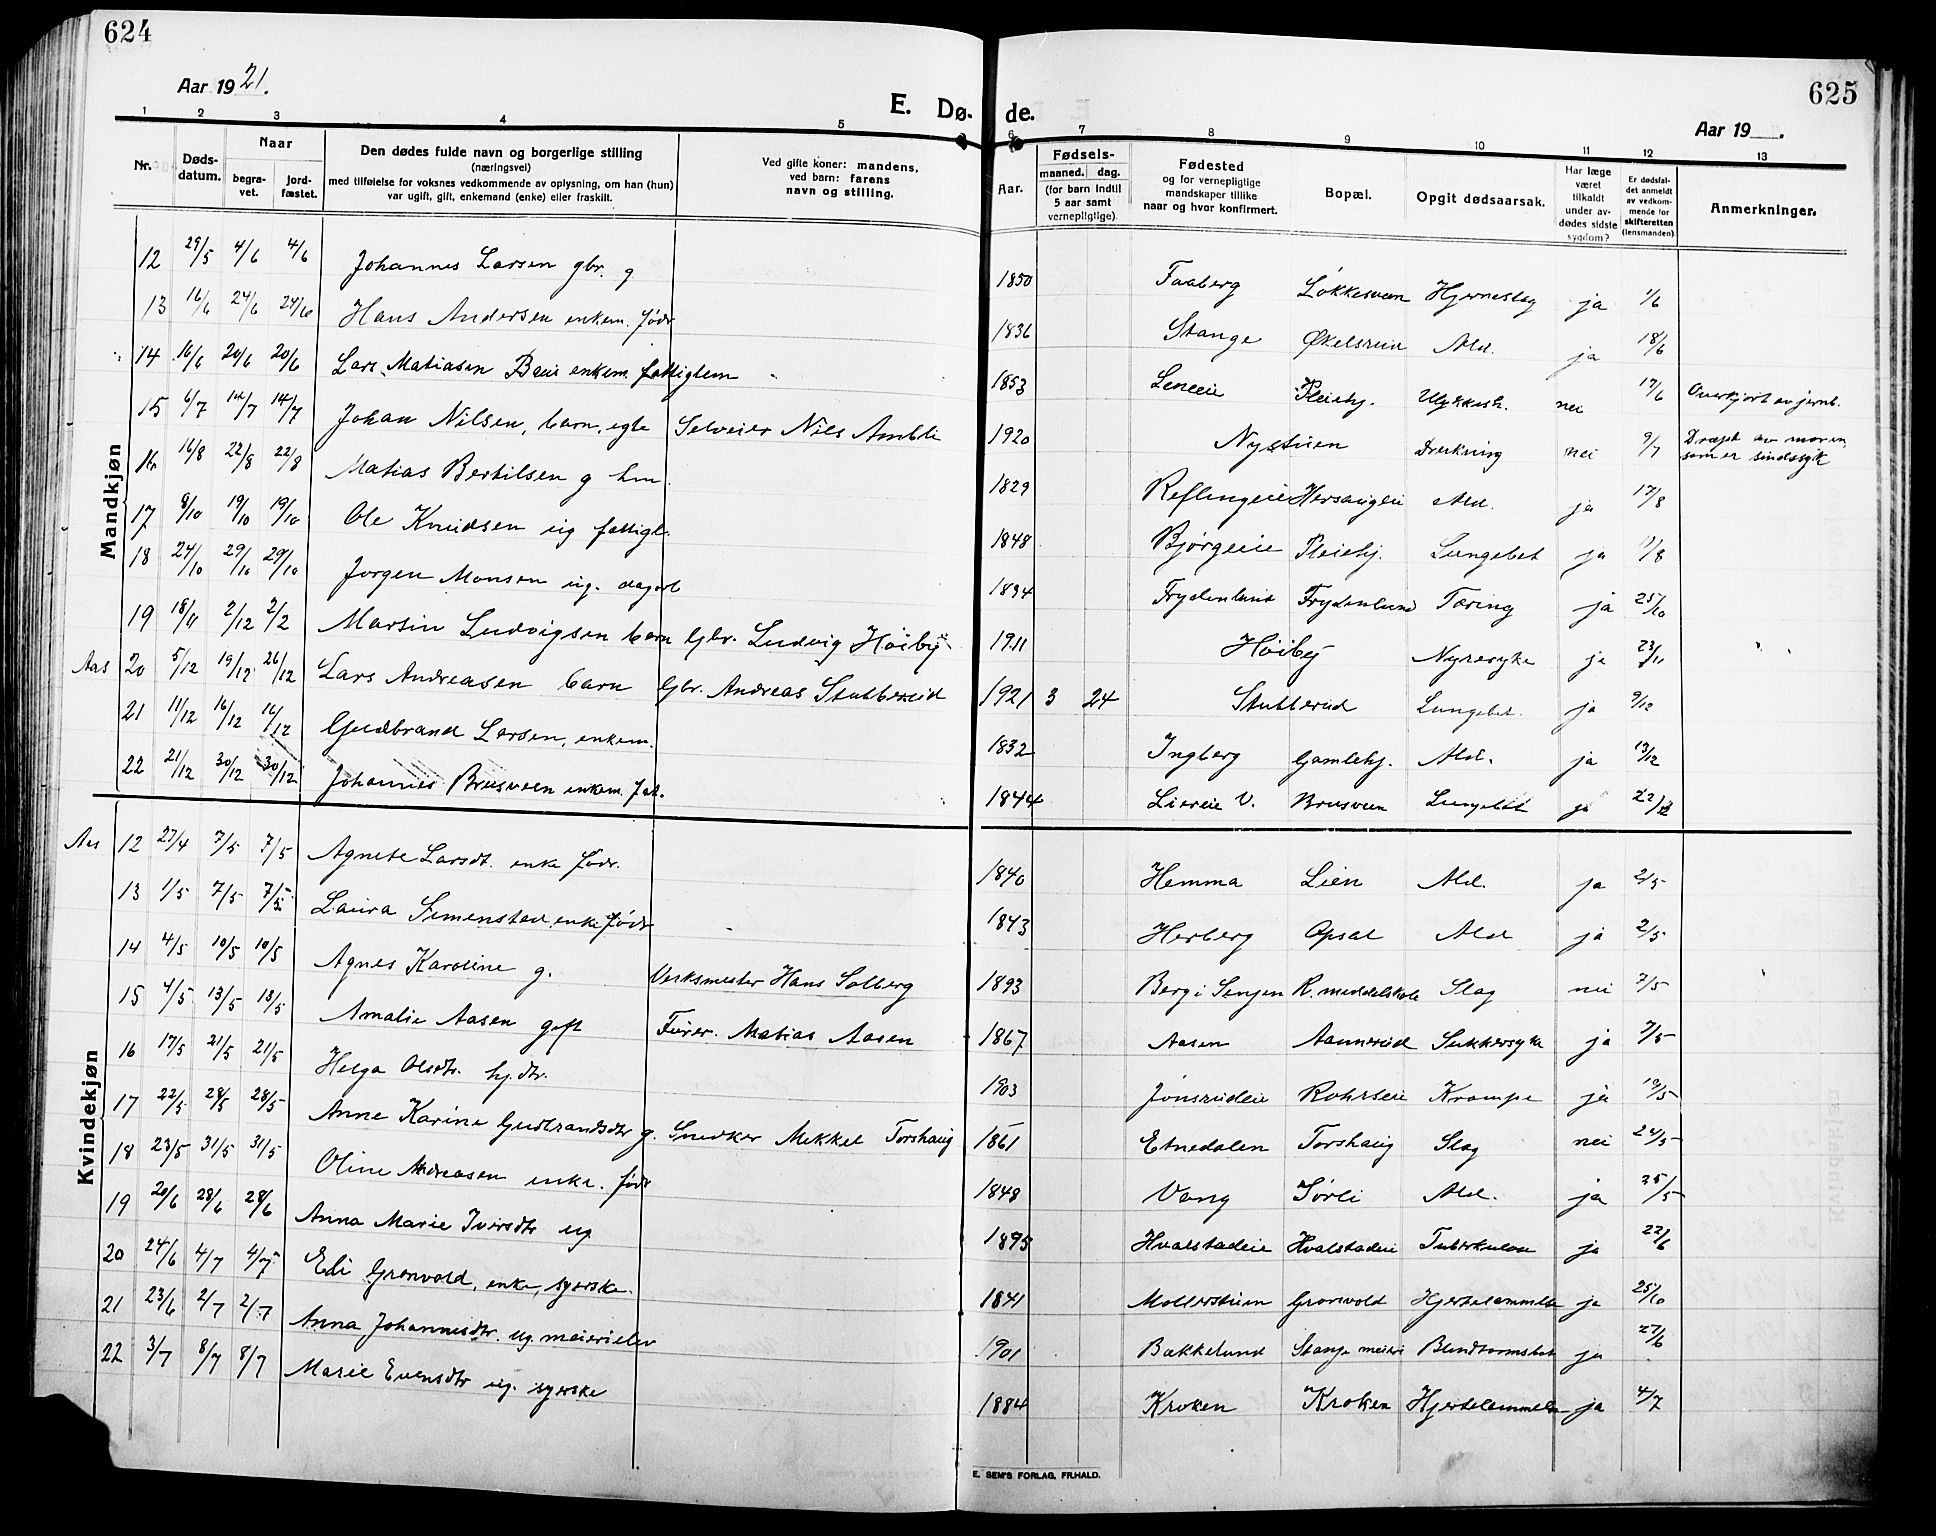 624
625
Aar 1921.
E. Dø- de.
Aar 19 .
1 2 3 4 5 6 7 8 9 10 11 12 13
Nr.
Døds-datum.
Naar
begra-vet.
jord-fæstet.
Den dødes fulde navn og borgerlige stilling
(næringsvei)
med tilføielse for voksnes vedkommende av oplysning, om han (hun)
var ugift, gift, enkemand (enke) eller fraskilt.
Ved gifte koner: mandens,
ved barn: farens
navn og stilling.
Aar.
Fødsels-
maaned. dag.
(for barn indtil
5 aar samt
vernepligtige).
Fødested
og for vernepligtige
mandskaper tillike
naar og hvor konfirmert.
Bopæl.
Opgit dødsaarsak.
Har læge
været
tilkaldt
under av-
dødes sidste
sygdom?
Er dødsfal-
det anmeldt
av vedkom-
mende for
skifteretten
(lensmanden).
Anmerkninger.
Mandkjøn
12 29/5 4/6 4/6 Johannes Larsen gbr. g 1850 Faaberg Løkkesveen Hjerneslag ja 1/6
13 16/6 24/6 24/6 Hans Andersen enkem. fødr 1836 Stange Økelsrud Ald. ja 18/6
14 16/6 20/6 20/6 Lars Matiasen enkem. fattiglem 1853 Pleiehj. Ulykkesh. nei 17/6 Overkjørt av jernb.
15 6/7 14/7 14/7 Johan Nilsen, barn, egte Selveier Nils Ambli 1920 Nystuen Drukning nei 9/7 Dræpt av moren,
som er sindssyk
16 16/8 22/8 22/8 Matias Bertilsen g hm. 1829 Reflingeie Hersaugeie Ald. ja 17/8
17 8/10 19/10 19/10 Ole Knudsen ug fattigl. 1848 Bjørgeie Pleiehj. Lungebet ja 11/8
18 24/10 29/10 29/10 Jørgen Monsen ug. dagarb 1894 Frydenlund Frydenlund Tæring ja 25/10
19 18/11 2/12 2/2 Martin Ludvigsen barn Gbr. Ludvig Høiby 1911 Høiby Nyresyke ja 23/11
Aas 20 5/12 19/12 26/12 Lars Andreasen barn Gbr. Andreas Stubberud 1921 3 24 Stubberud Lungebet. ja 9/12
21 11/12 16/12 16/12 Gudbrand Larsen, enkem. 1832 Ingberg Gamlehj. Ald. ja 13/12
22 21/12 30/12 30/12 Johannes Brusveen enkem. 1844 Liereie V. Brusveen Lungebet ja 22/12
Kvindekjøn
Aas 12 27/4 7/5 7/5 Agnete Larsdt. enke fødr. 1840 Hemma Lien Ald. ja 2/5
13 1/5 7/5 7/5 Laura Simenstad, enke fødr 1843 Herberg Opsal Ald ja 2/5
14 4/5 10/5 10/5 Agnes Karoline g. Verksmester Hans Solberg 1893 Berg i Senjen R. meddelskole Slag nei 7/5
15 4/5 13/5 13/5 Amalie Aasen gift Furer. Matias Aasen 1867 Aasen Aannerud Sukkersyke ja 7/5
16 17/5 21/5 21/5 Helga Olsdtr. hj.dtr. 1903 Jønsrudeie Rohrseie Krampe ja 19/5
17 22/5 28/5 28/5 Anne Karine Gudbrandsdtr g. Snedker Mikkel Torshaug 1861 Etnedalen Torshaug Slag nei 24/5
18 23/5 31/5 31/5 Oline Andreasen enke. fødr 1848 Vang Sørli Ald. ja 25/5
19 20/6 28/6 28/6 Anna Marie Iversdtr ug 1895 Hvalstadeie Hvalstadeie Tuberkulose ja 22/6
20 24/6 4/7 4/7 Edi Grønvold, enke, syerske. 1841 Møllerstuen Grønvold Hjertelammelse ja 25/10
21 23/6 2/7 2/7 Anna Johannesdtr. ug. meierielev 1901 Bakkelund Stange meieri Blindtarmsbet ja 27/6
22 3/7 8/7 8/7 Marie Evensdtr ug. syerske 1884 Kroken Kroken Hjertelammelse ja 4/7
E. SEM'S FORLAG, FR.HALD.